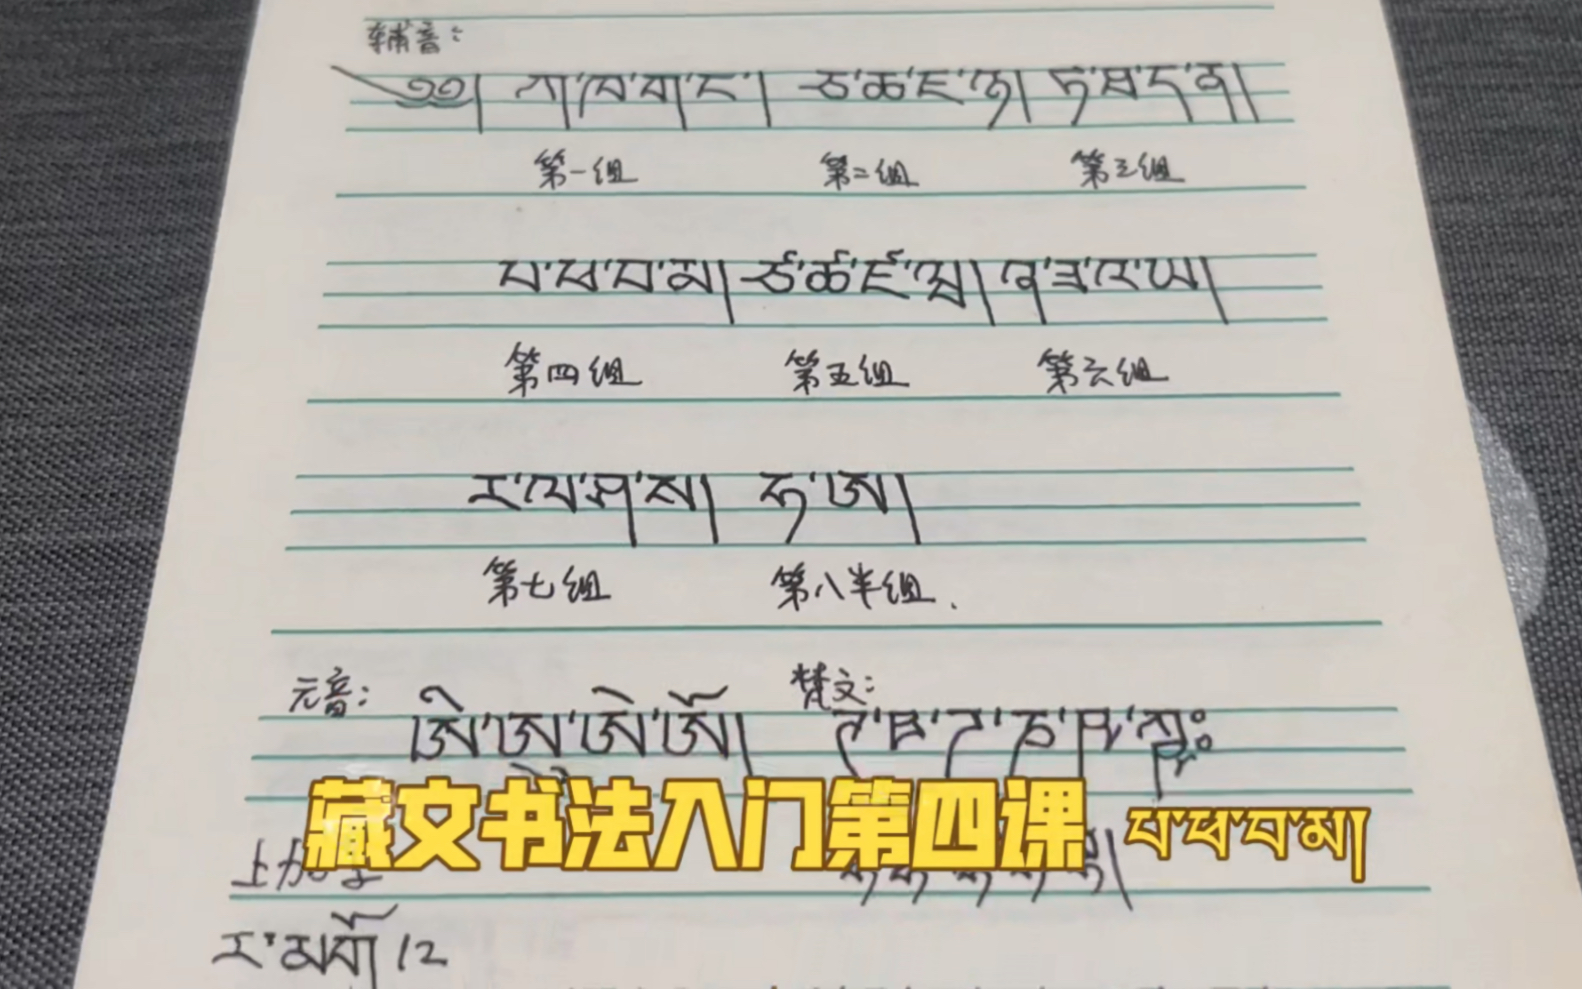 辅音：
༄༅། ཀ་ཁ་ག་ང་། ཅ་ཆ་ཇ་ཉ། ཏ་ཐ་ད་ན།
第一组 第二组 第三组
པ་ཕ་བ་མ། ཙ་ཚ་ཛ་ཝ། ཞ་ཟ་འ་ཡ།
第四组 第五组 第六组
ར་ལ་ཤ་ས། ཧ་ཨ།
第七组 第八半组.
元音： ཨི་ཨུ་ཨེ་ཨོ། 梵文： ཊ་ཋ་ཌ་ཎ་ཥ་ཀྵཿ
藏文书法入门第四课 པ་ཕ་བ་མ།
ར་མགོ 12